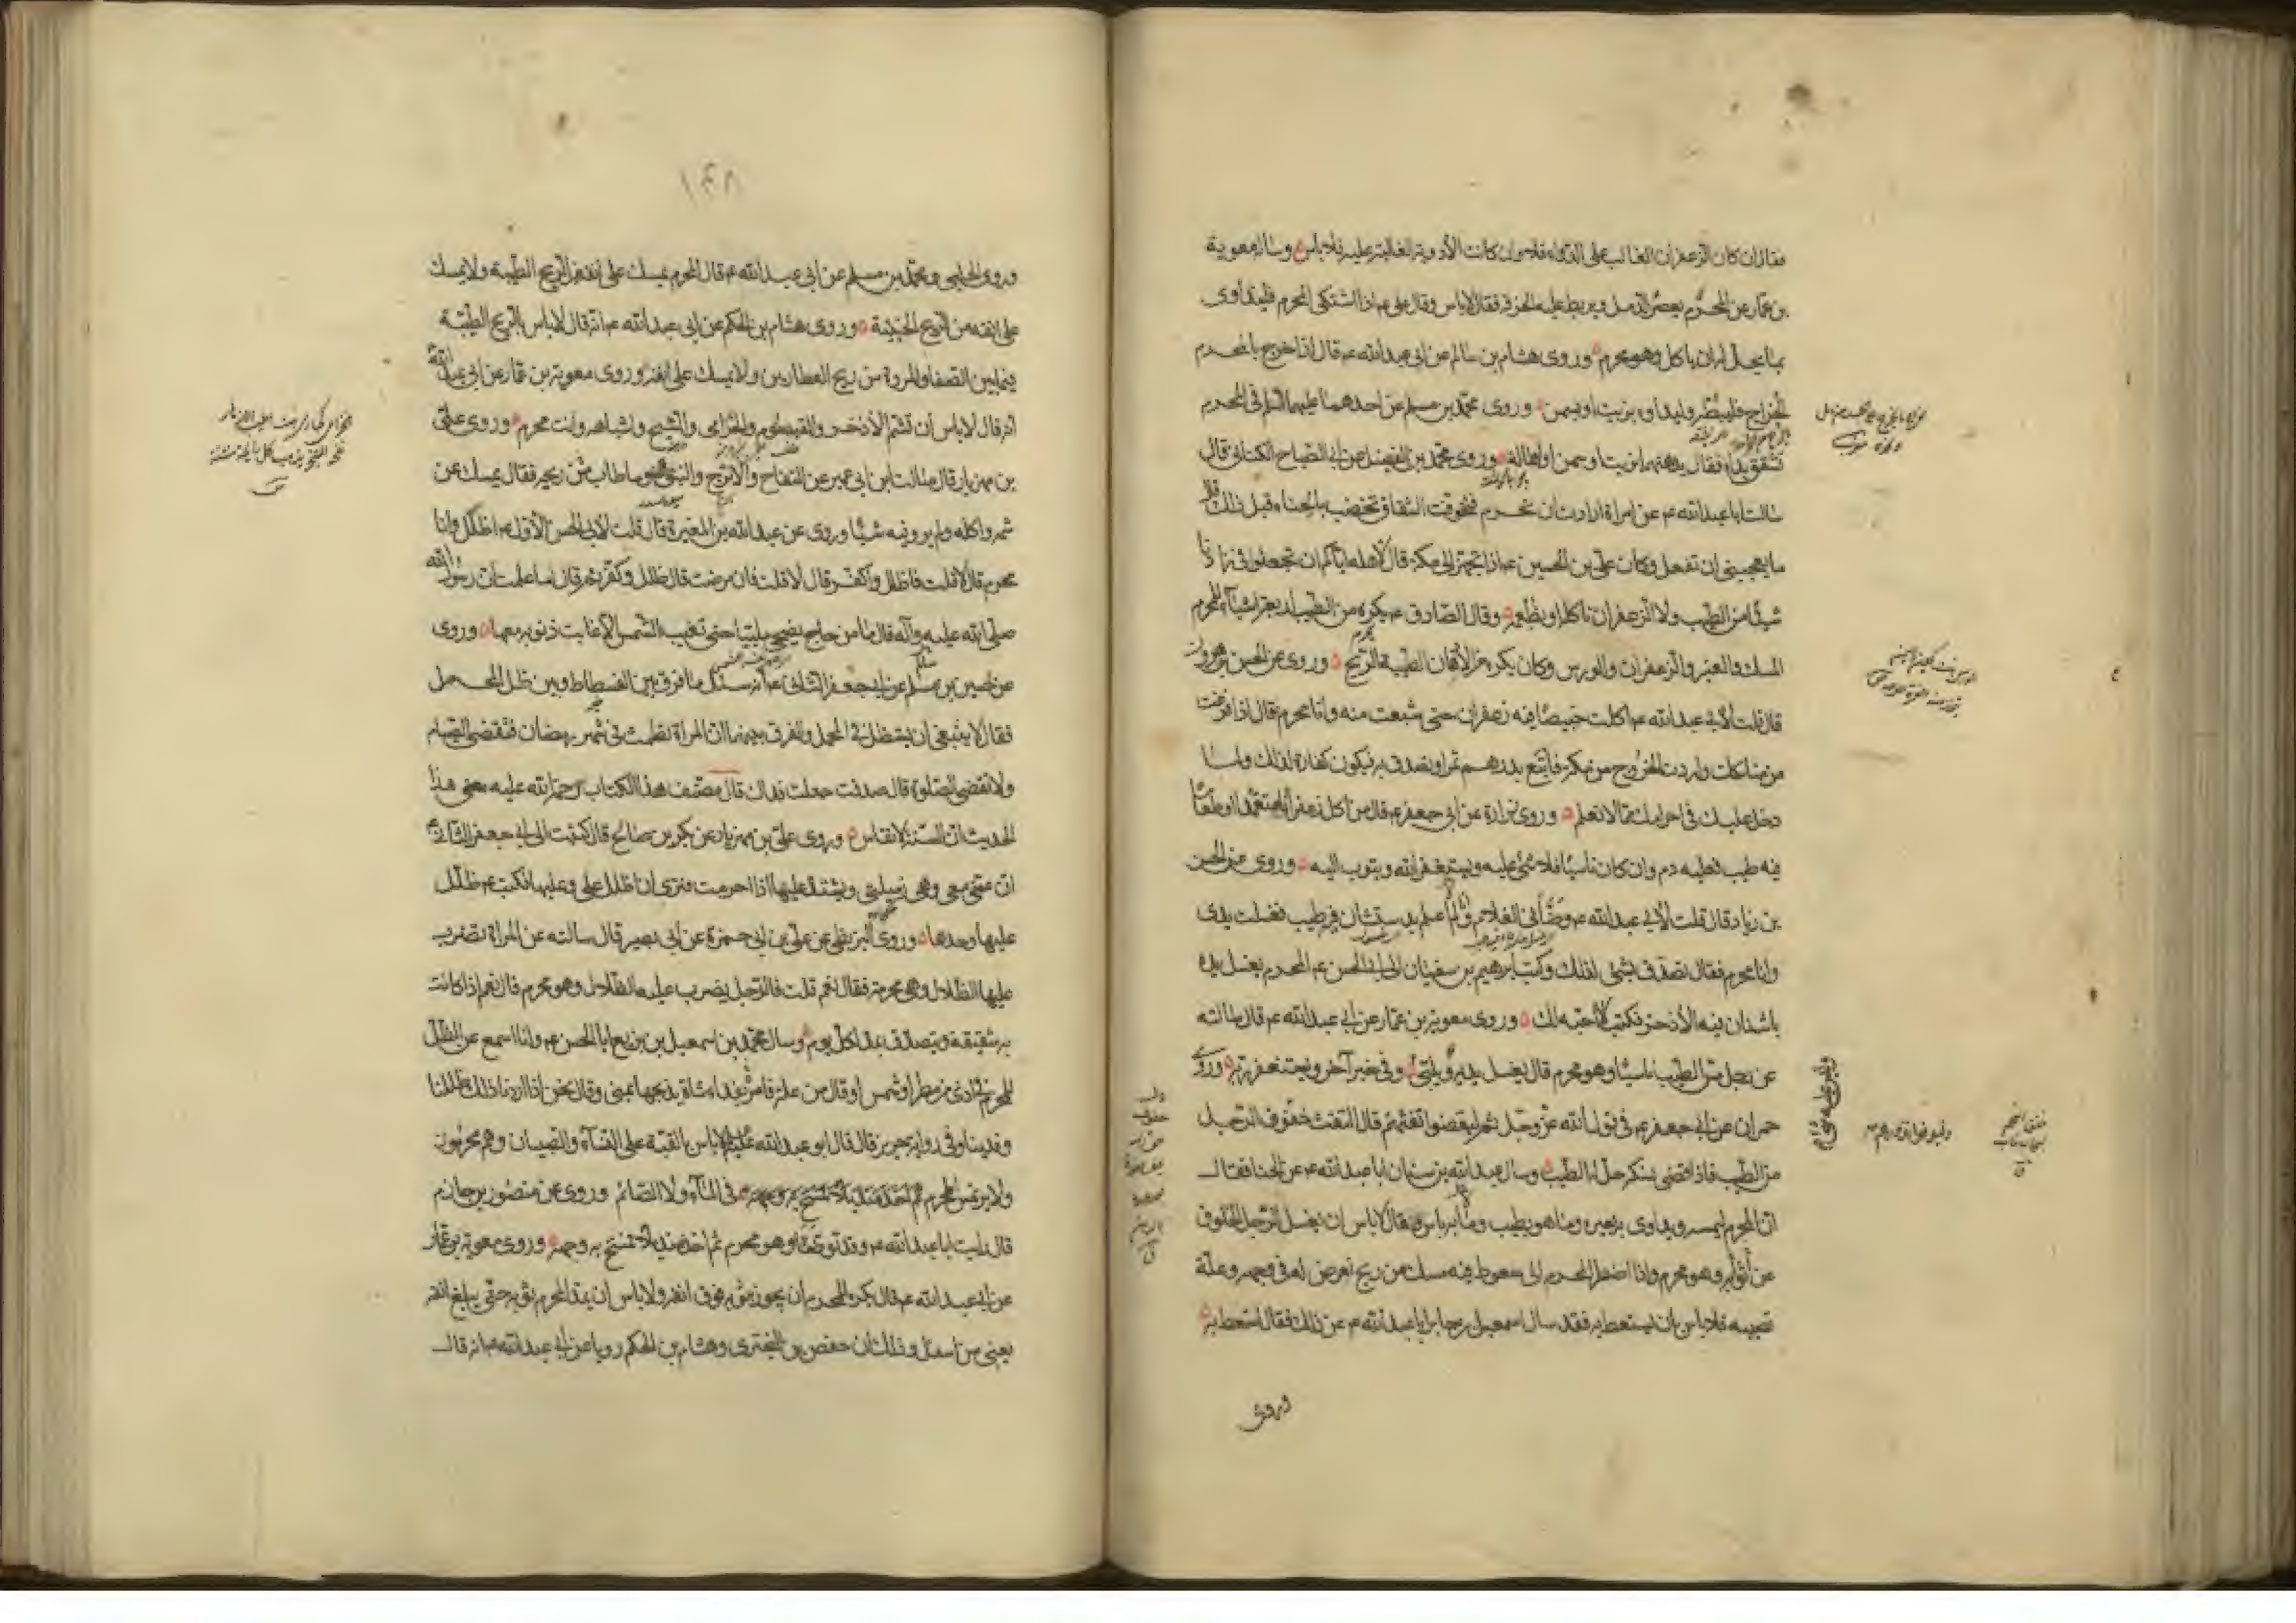 فقال ان كان الزعفران الغالب على الدواء فلا وان كانت الأدوية الغالبة عليه فلا بأس وساله معوية
بن عمار عن المحرم يعصر الدمل ويربط عليه الخرقة فقال لا باس وقال على ع اذا اشتكى المحرم فليتداوى
بما يحل له ان ياكل وهو محرم وروى هشام بن سالم عن ابى عبد الله ع قال اذا خرج بالمحرم
الخراج فليبطه وليداوه بزيت او بسمن وروى محمد بن مسلم عن احدهما عليهما السلم فى المحرم
تشقق يداه فقال يدهنهما بزيت او سمن او اهالة وروى محمد بن الفضيل عن ابى الصباح الكنانى قال
سالت ابا عبد الله ع عن امراة ارادت ان تحرم فتخوفت الشقاق تخضب بالحناء قبل ذلك قال
ما يعجبنى ان تفعل وكان على بن الحسين ع اذا تجهز الى مكة قال لاهله اياكم ان تجعلوا فى زادنا
شيئا من الطيب ولا الزعفران ناكله او نطعمه وقال الصادق ع يكره من الطيب اربعة اشياء للمحرم
المسك والعنبر والزعفران والورس وكان يكره من الأدهان الطيبة الريح وروى عن الحسن بن هرون
قال قلت لأبى عبد الله ع اكلت خبيصا فيه زعفران حتى شبعت منه وانا محرم فقال اذا فرغت
من مناسكك واردت الخروج من مكة فابتع بدرهم تمرا وتصدق به فيكون كفارة لذلك ولما
دخل عليك فى احرامك مما لا تعلم وروى زرارة عن ابى جعفر ع قال من اكل زعفرانا متعمدا او طعاما
فيه طيب فعليه دم وان كان ناسيا فلا شئ عليه ويستغفر الله ويتوب اليه وروى عن الحسن
بن زياد قال قلت لأبى عبد الله ع وضأنى الغلام ولم اعلم بدستشان فيه طيب فغسلت يدى
وانا محرم فقال تصدق بشئ لذلك وكتب ابرهيم بن سفيان الى ابى الحسن ع المحرم يغسل يده
باشنان فيه الأذخر فكتب لا احبه لك وروى معوية بن عمار عن ابى عبد الله ع قال سالته
عن رجل مس الطيب ناسيا وهو محرم قال يغسل يديه ويلبى وفى خبر آخر ويستغفر ربه وروى
حمران عن ابى جعفر ع فى قول الله عز وجل ثم ليقضوا تفثهم قال التفث حفوف الرجل
من الطيب فاذا قضى نسكه حل له الطيب وسال عبد الله بن سنان ابا عبد الله ع عن الحنا فقال
ان المحرم ليمسه ويداوى به بعيره وما هو بطيب وما به باس وقال لا باس ان يغسل الرجل الخلوق
عن ثوبه وهو محرم واذا اضطر المحرم الى سعوط فيه مسك من ريح تعرض له فى وجهه وعلة
تصيبه فلا باس بان يستعط به فقد سال اسمعيل بن جابر ابا عبد الله ع عن ذلك فقال استعط به
وروى
١٤٨
وروى الحلبى ومحمد بن مسلم عن ابى عبد الله ع قال المحرم يمسك على انفه من الريح الطيبة ولا يمسك
على انفه من الريح الخبيثة وروى هشام بن الحكم عن ابى عبد الله ع انه قال لا باس بالريح الطيبة
فيما بين الصفا والمروة من ريح العطارين ولا يمسك على انفه وروى معوية بن عمار عن ابى عبد الله ع
انه قال لا باس ان تشم الأذخر والقيصوم والخزامى والشيح واشباهه وانت محرم وروى على
بن مهزيار قال سالت ابن ابى عمير عن التفاح والاترج والنبق وما طاب من ريحه فقال يمسك عن
شمه واكله ولم يرو فيه شيئا وروى عن عبد الله بن المغيرة قال قلت لأبى الحسن الأول ع اظلل وانا
محرم قال لا قلت فاظلل واكفر قال لا قلت فان مرضت قال ظلل وكفر ثم قال اما علمت ان رسول الله
صلى الله عليه وآله قال ما من حاج يضحى ملبيا حتى تغيب الشمس الا غابت ذنوبه معها وروى
عن الحسين بن مسلم عن ابى جعفر الثانى ع انه سئل ما فرق بين الفسطاط وبين ظل المحمل
فقال لا ينبغى ان يستظل فى المحمل والفرق بينهما ان المراة تطمث فى شهر رمضان فتقضى الصيام
ولا تقضى الصلوة قال صدقت جعلت فداك قال مصنف هذا الكتاب رحمة الله عليه معنى هذا
الحديث ان السنة لا تقاس وروى على بن مهزيار عن بكر بن صالح قال كتبت الى ابى جعفر الثانى ع
ان عمتى معى وهى زميلتى ويشتد عليها اذا احرمت فترى ان اظلل على وعليها فكتب ع ظلل
عليها وحدها وروى البزنطى عن على بن ابى حمزة عن ابى بصير قال سالته عن المراة تضرب
عليها الظلال وهى محرمة فقال نعم قلت فالرجل يضرب عليه الظلال وهو محرم قال نعم اذا كانت
به شقيقة ويتصدق بمد لكل يوم وسال محمد بن اسمعيل بن بزيع ابا الحسن ع وانا اسمع عن الظل
للمحرم فى اذى من مطر او شمس او قال من علة فامر بفداء شاة يذبحها بمنى وقال نحن اذا اردنا ذلك ظللنا
وفدينا وفى رواية حريز قال قال ابو عبد الله عليه السلم لا باس بالقبة على النساء والصبيان وهم محرمون
ولا يرتمس المحرم فى الماء ولا الصائم وروى عن منصور بن حازم
قال رايت ابا عبد الله ع وقد توضأ وهو محرم ثم اخذ منديلا فمسح به وجهه وروى معوية بن عمار
عن ابى عبد الله ع قال يكره للمحرم ان يجوز ثوبه فوق انفه ولا باس ان يمد المحرم ثوبه حتى يبلغ انفه
يعنى من اسفل وذلك ان حفص بن البخترى وهشام بن الحكم رويا عن ابى عبد الله ع انه قال